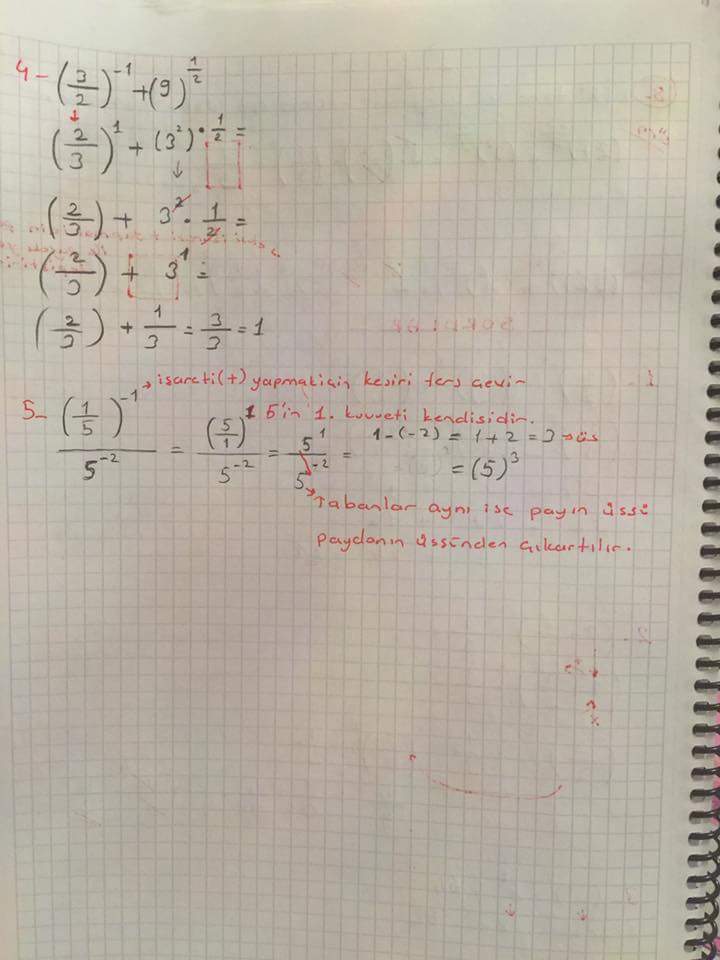 4- (3/2)^-1 + (9)^1/2
(2/3)^1 + (3^2) · 1/2 =
(2/3) + 3^2 · 1/2 =
(2/3) + 3^1 =
(2/3) + 1/3 = 3/3 = 1
işareti (+) yapmak için kesiri ters çevir
5- (1/5)^-1 / 5^-2 = (5/1)^1 / 5^-2 = 5^1 / 5^-2 =
5'in 1. kuvveti kendisidir.
1-(-2) = 1+2 = 3 → üs
= (5)^3
Tabanlar aynı ise payın üssü
paydanın üssünden çıkartılır.